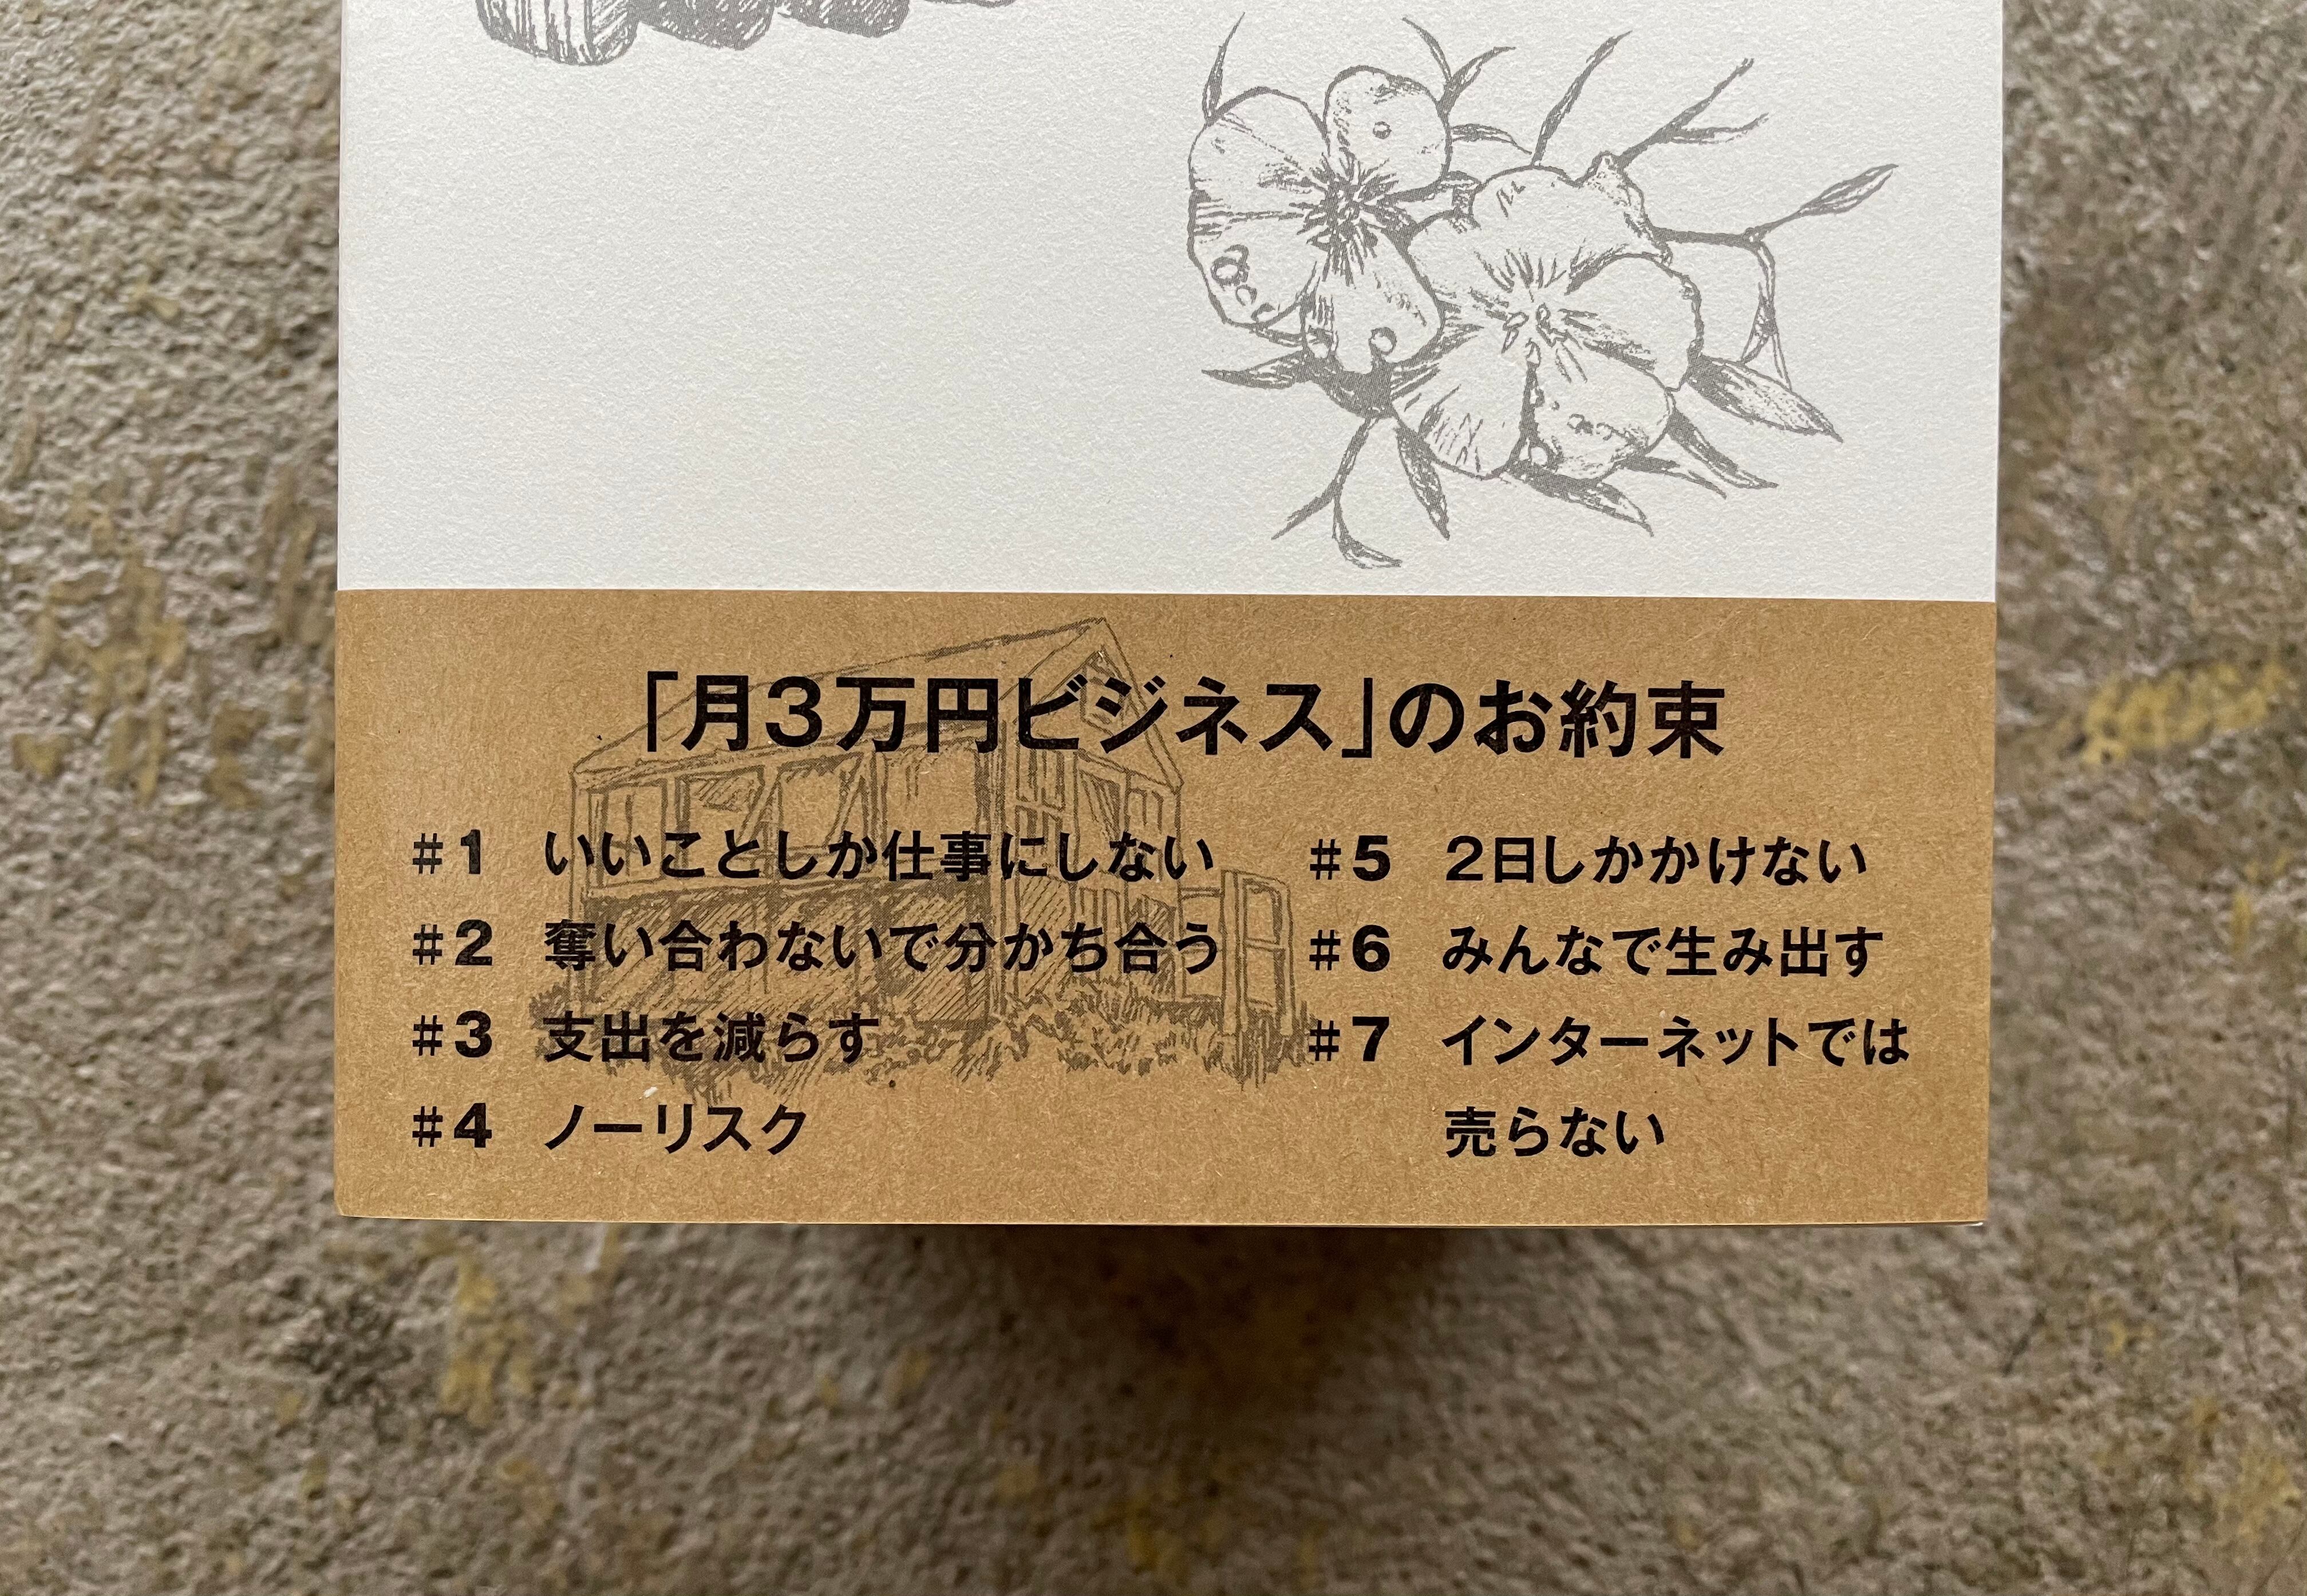 「月3万円ビジネス」のお約束
#1 いいことしか仕事にしない
#2 奪い合わないで分かち合う
#3 支出を減らす
#4 ノーリスク
#5 2日しかかけない
#6 みんなで生み出す
#7 インターネットでは
売らない